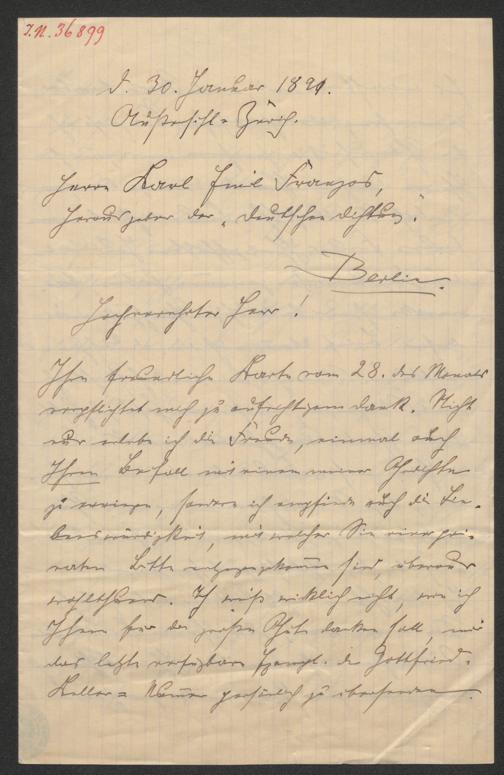 J.N. 36899
d. 30. Januar 1891.
Außersihl-Zürich.
Herrn Karl Emil Franzos,
Herausgeber der „Deutschen Dichtung“.
Berlin.
Hochverehrter Herr!
Ihre freundliche Karte vom 28. des Monats
verpflichtet mich zu aufrichtigem Dank. Nicht
nur erlebe ich die Freude, einmal auch
Ihren Beifall mit einem meiner Gedichte
zu erringen, sondern ich empfinde auch die Lie-
benswürdigkeit, mit welcher Sie einer pri-
vaten Bitte entgegengekommen sind, überaus
wohlthuend. Ich weiß wirklich nicht, wie ich
Ihnen für die große Güte danken soll, mir
das letzte verfügbare Exempl. der Gottfried-
Keller-Nummer persönlich zu übersenden.